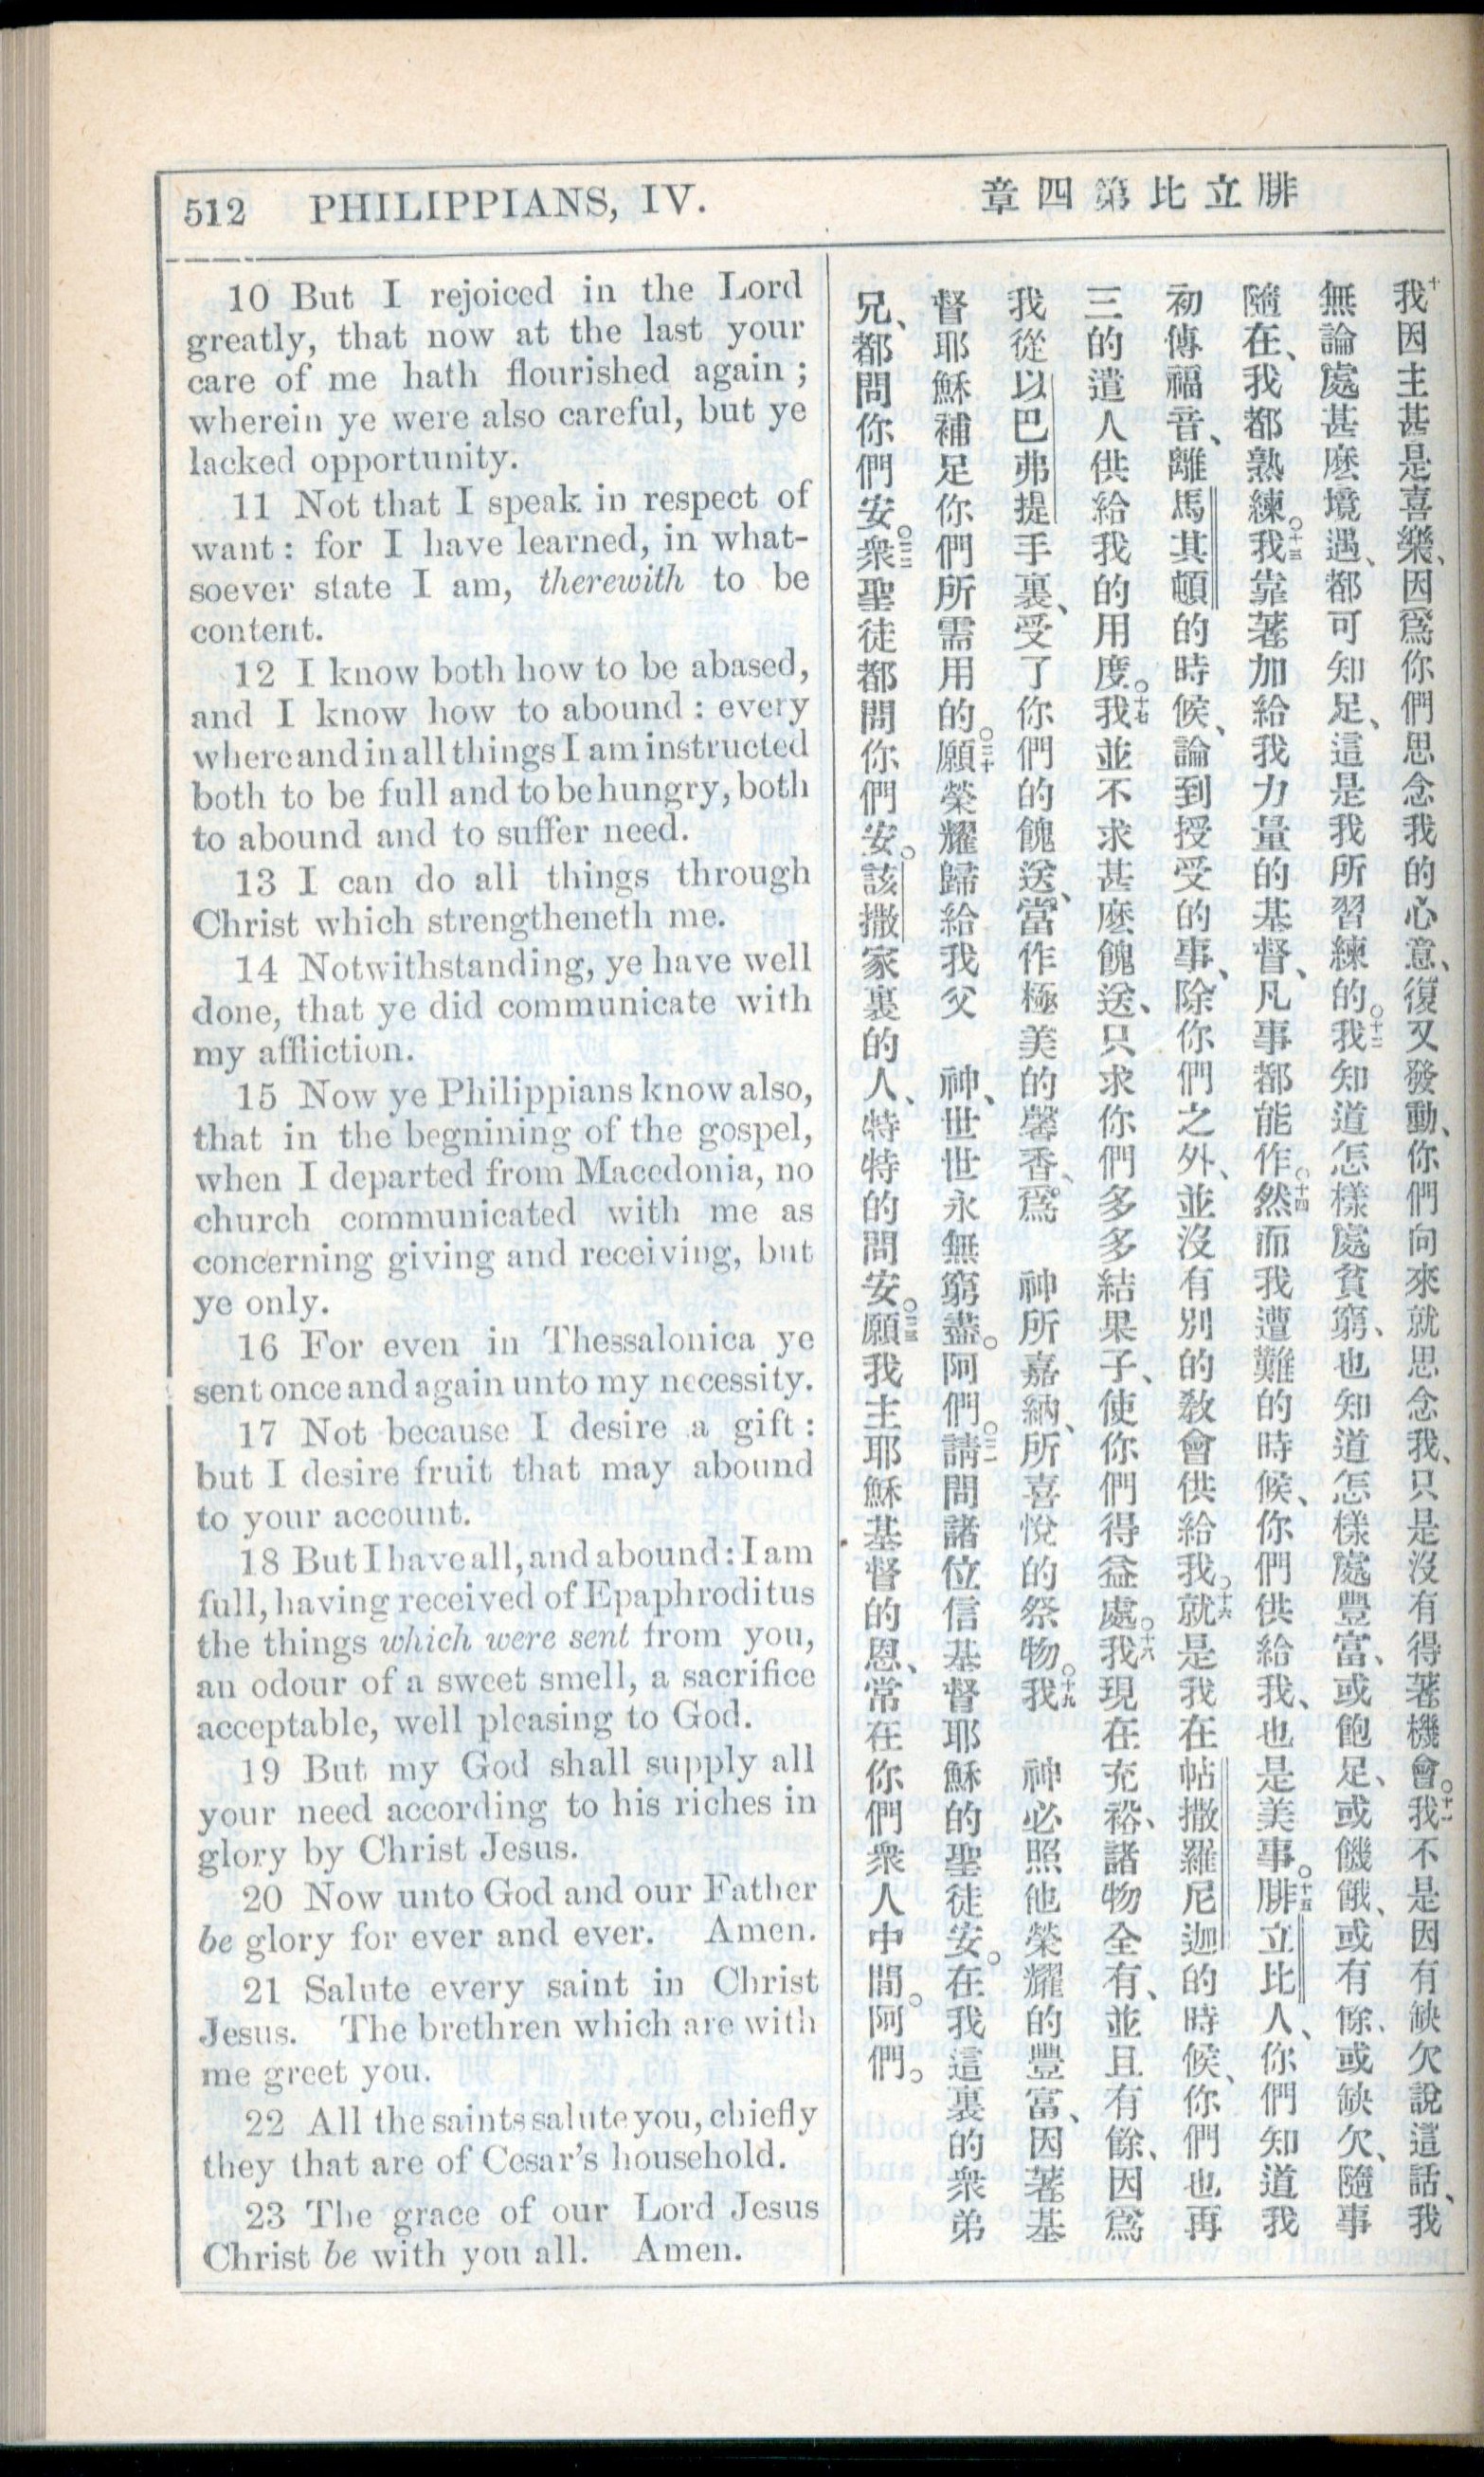 512 PHILIPPIANS, IV.
章四第比立腓
10 But I rejoiced in the Lord
greatly, that now at the last your
care of me hath flourished again ;
wherein ye were also careful, but ye
lacked opportunity.
11 Not that I speak in respect of
want : for I have learned, in what-
soever state I am, therewith to be
content.
12 I know both how to be abased,
and I know how to abound : every
where and in all things I am instructed
both to be full and to be hungry, both
to abound and to suffer need.
13 I can do all things through
Christ which strengtheneth me.
14 Notwithstanding, ye have well
done, that ye did communicate with
my affliction.
15 Now ye Philippians know also,
that in the begnining of the gospel,
when I departed from Macedonia, no
church communicated with me as
concerning giving and receiving, but
ye only.
16 For even in Thessalonica ye
sent once and again unto my necessity.
17 Not because I desire a gift :
but I desire fruit that may abound
to your account.
18 But I have all, and abound : I am
full, having received of Epaphroditus
the things which were sent from you,
an odour of a sweet smell, a sacrifice
acceptable, well pleasing to God.
19 But my God shall supply all
your need according to his riches in
glory by Christ Jesus.
20 Now unto God and our Father
be glory for ever and ever. Amen.
21 Salute every saint in Christ
Jesus. The brethren which are with
me greet you.
22 All the saints salute you, chiefly
they that are of Cesar's household.
23 The grace of our Lord Jesus
Christ be with you all. Amen.
十我因主甚是喜樂、因爲你們思念我的心意、復又發動、你們向來就思念我、只是沒有得著機會。十一我不是因有缺欠說這話、我
無論處甚麽境遇、都可知足、這是我所習練的。十二我知道怎樣處貧窮、也知道怎樣處豐富、或飽足、或饑餓、或有餘、或缺欠、隨事
隨在、我都熟練。十三我靠著加給我力量的基督、凡事都能作。十四然而我遭難的時候、你們供給我、也是美事。十五腓立比人、你們知道我
初傳福音、離馬其頓的時候、論到授受的事、除你們之外、並沒有別的敎會供給我。十六就是我在帖撒羅尼迦的時候、你們也再
三的遣人供給我的用度。十七我並不求甚麽餽送、只求你們多多結果子、使你們得益處。十六我現在充裕、諸物全有、並且有餘、因爲
我從以巴弗提手裏、受了你們的餽送、當作極美的馨香、爲 神所嘉納、所喜悅的祭物。十九我 神必照他榮耀的豐富、因著基
督耶穌補足你們所需用的。二十願榮耀歸給我父 神、世世永無窮盡。阿們。二一請問諸位信基督耶穌的聖徒安。在我這裏的衆弟
兄、都問你們安。二二衆聖徒都問你們安。該撒家裏的人、特特的問安。二三願我主耶穌基督的恩、常在你們衆人中間。阿們。